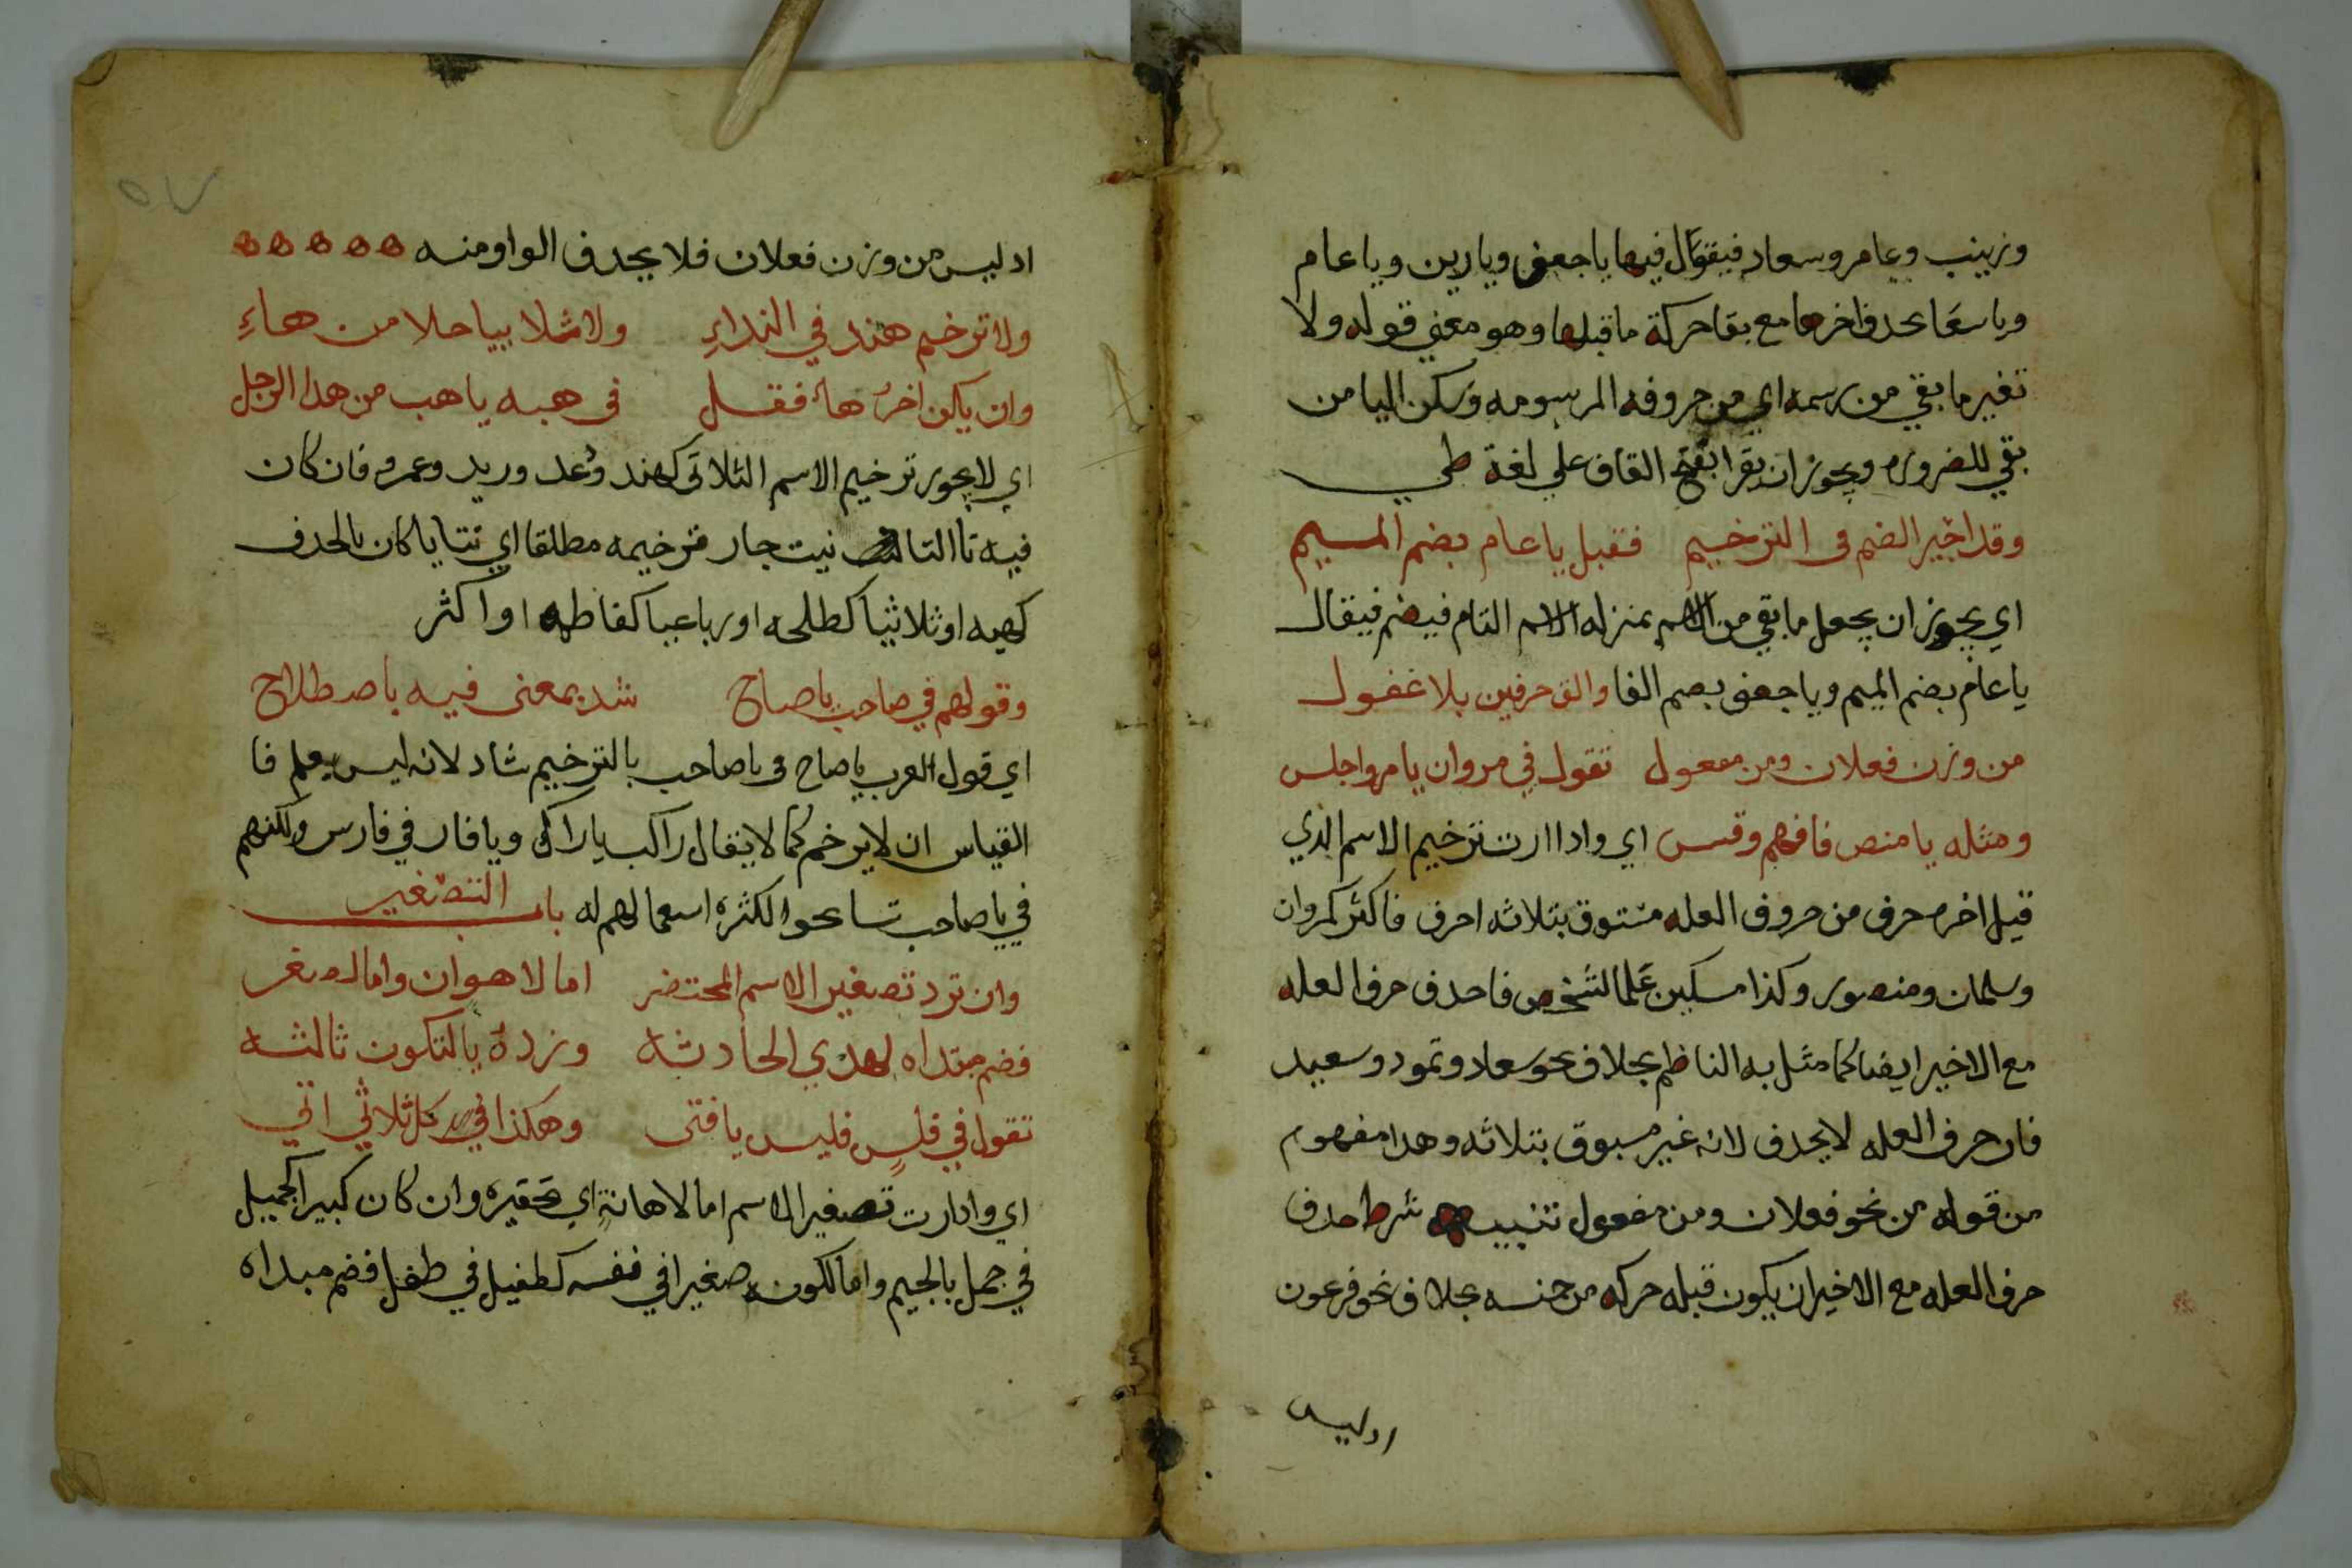 وزينب وعامر وسعاد فيقال فيها ياجعف ويازين وياعام
وياسعا بحدف اخرها مع بقا حركة ماقبلها وهو معني قوله ولا
تغير ما بقي من رسمه اي من حروفه المرسومه وسكن اليا من
بقي للضروره ويجوز ان يقرا بفتح القاف علي لغة طي
وقد اجيز الضم في الترخيم فقيل ياعام بضم الميم
اي يجوز ان يجعل ما بقي من الاسم بمنزله الاسم التام فيضم فيقال
ياعام بضم الميم وياجعف بصم الفا والق حرفين بلا غفول
من وزن فعلان ومن مفعول تقول في مروان يامرو اجلس
ومثله يا منص فافهم وقس اي وادا اردت ترخيم الاسم الذي
قبل اخره حرف من حروف العله مسبوق بثلاثه احرف فاكثر كمروان
وسلمان ومنصور وكذا مسكين علما لشخص فاحدف حرف العله
مع الاخير ايضا كما مثل به الناظم بخلاف نحو سعاد وثمود وسعيد
فان حرف العله لا يحدف لانه غير مسبوق بثلاثه وهدا مفهوم
من قوله من نحو فعلان ومن مفعول تنبيه شرط حدف
حرف العله مع الاخير ان يكون قبله حركه من جنسه بخلاف نحو فرعون
ادليس
٥٧
ادليس من وزن فعلان فلا يحدف الواو منه ه ه ه ه ه
ولا ترخيم هند في النداءِ ولا ثلاثيا خلا من هاءِ
وان يكن اخره هاء فقل في هبه ياهب من هدا الرجل
اي لا يجوز ترخيم الاسم الثلاثي كهند ودعد وزيد وعمرو فان كان
فيه تا التانيث جاز ترخيمه مطلقا اي ثنايا كان بالحدف
كهبه او ثلاثيا كطلحه او رباعيا كفاطمه او اكثر
وقولهم في صاحب ياصاح شد بمعنى فيه باصطلاح
اي قول العرب ياصاح في ياصاحب بالترخيم شاد لانه ليس بعلم فا
القياس ان لا يرخم كما لا يقال راكب ياراك وياقار في فارس ولكنهم
في ياصاحب تسامحوا لكثره اسعمالهم له باب التصغير
وان ترد تصغير الاسم المحتقر اما لاهوان واما لصغر
فضم مبتداه لهذي الحادثه وزده يا لتكون ثالثه
تقول في فلس فليس يا فتى وهكذا في كل ثلاثي اتي
اي وادا ردت تصغير الاسم اما لاهانة اي تحقيره وان كان كبيرا كجميل
في جمل بالجيم واما لكونه صغيرا في نفسه كطفيل في طفل فضم مبداه